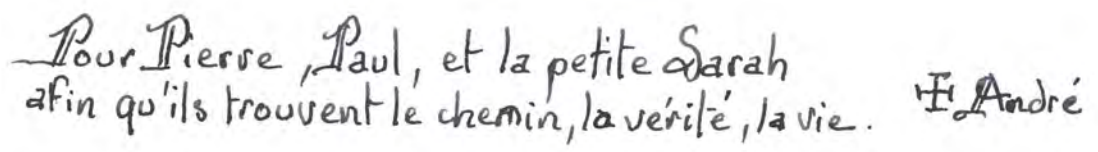 Pour Pierre, Paul, et la petite Sarah
afin qu'ils trouvent le chemin, la vérité, la vie.
F. André